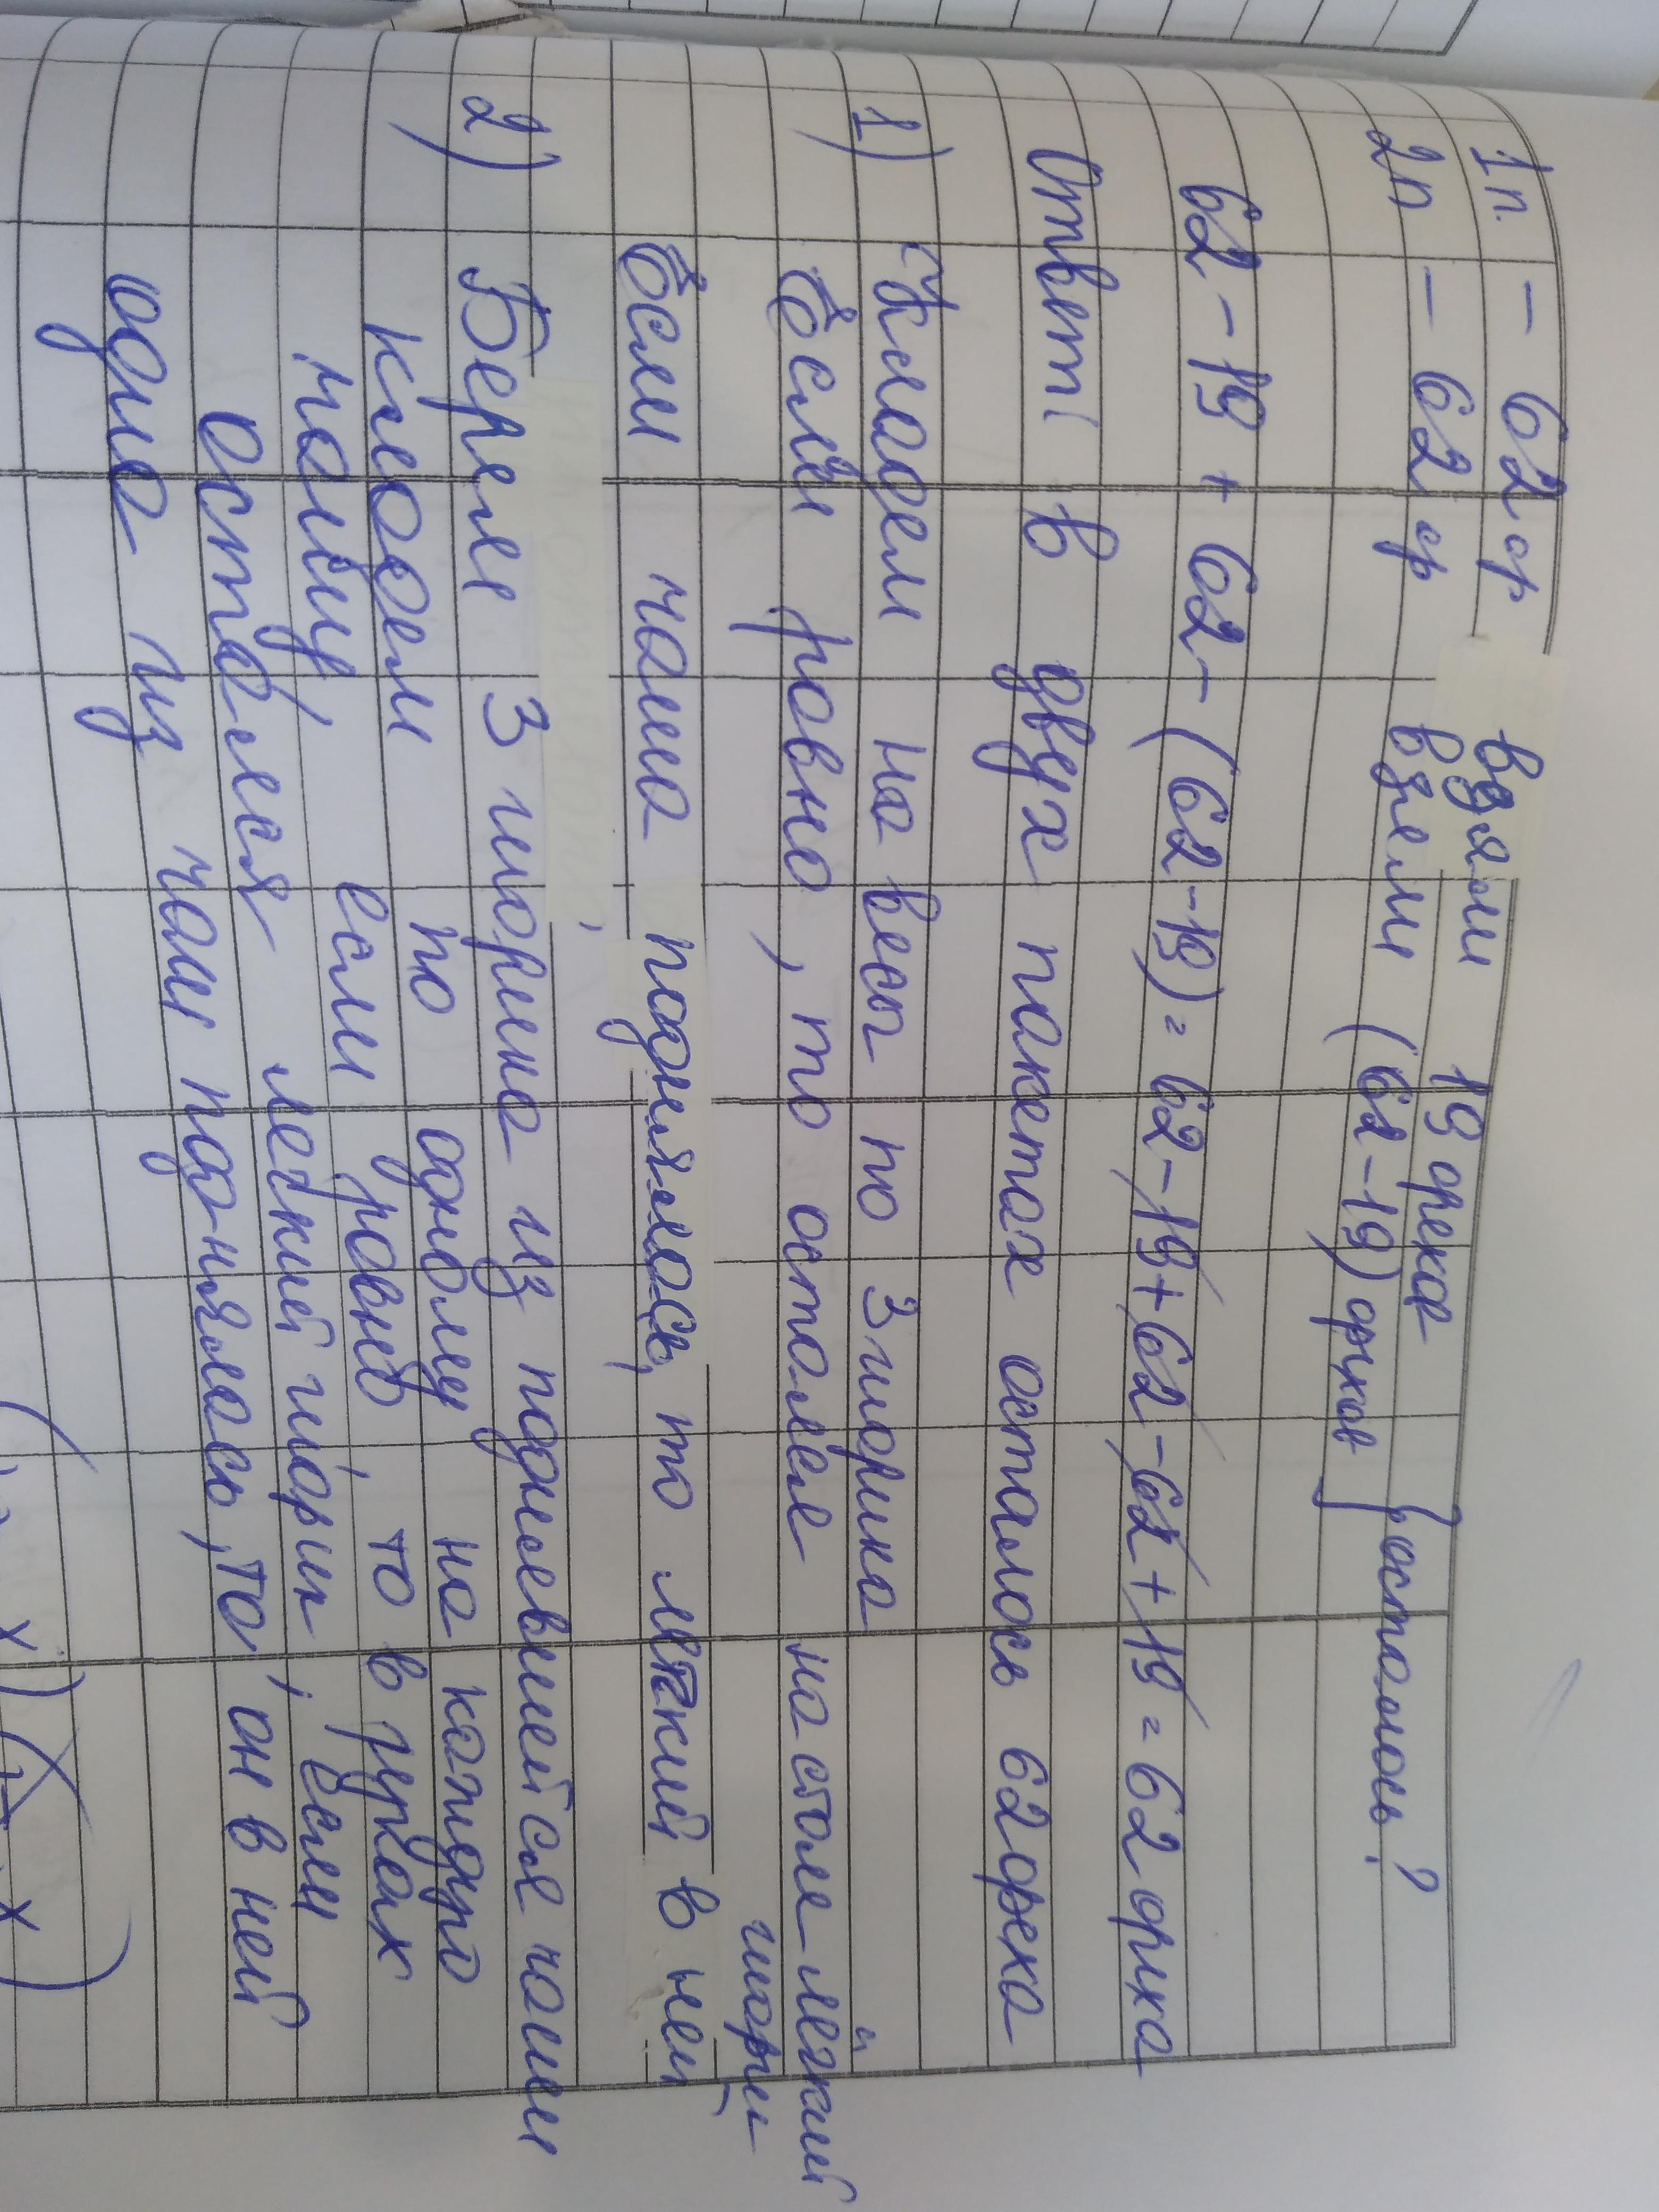 1п. – 62 ор взяли 19 орехов
2п – 62 ор взяли (62-19) орехов } осталось?
62 – 19 + 62 – (62-19) = 62 – 19 + 62 – 62 + 19 = 62 ореха
Ответ: в двух пакетах осталось 62 ореха
1) Кладем на весы по 3 шарика
Если равно, то остался на столе легкий
шарик
Если чаша поднялась, то легкий в ней
2) Берем 3 шарика из поднявшейся чаши
Кладем по одному на каждую
чашу, если равно, то в руках
остался легкий шарик, если
одна из чаш поднялась, то он в ней